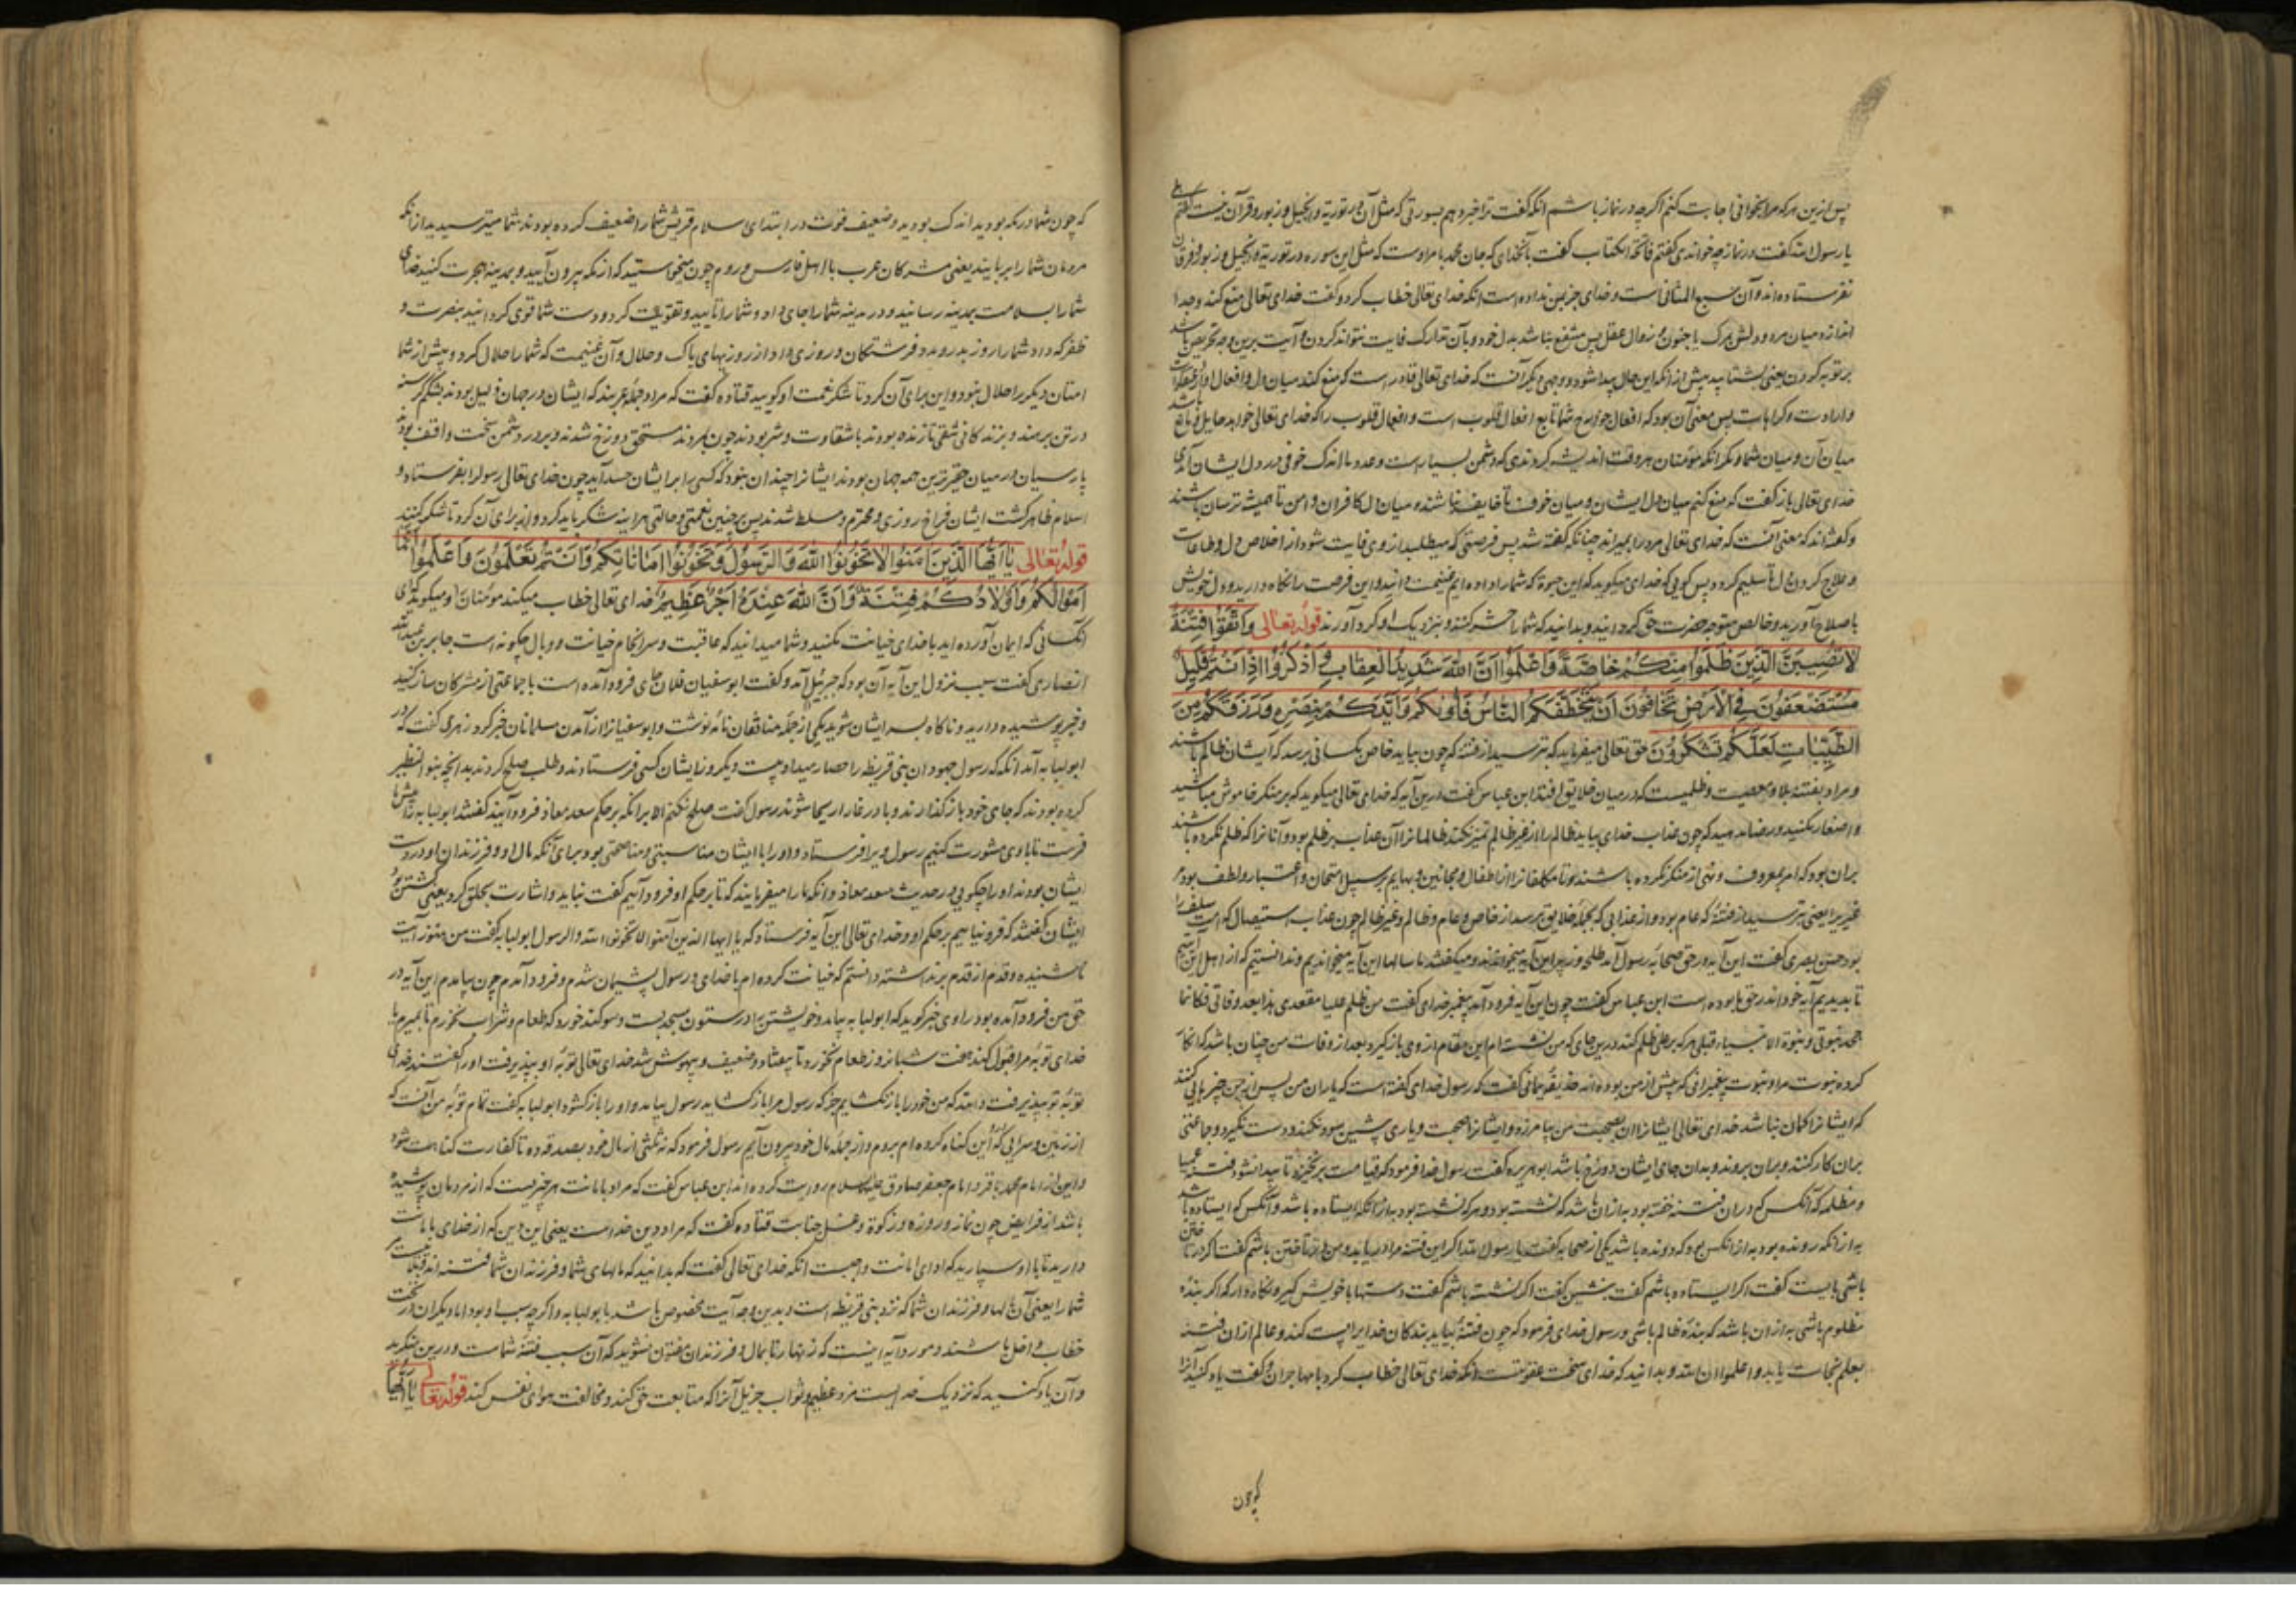 پس ازین هرکه مرا بخوانی اجابت کنم اگرچه در نماز باشم آنکه گفت ترا خبر دهم بسورتی که مثل آن در توریة و انجیل و زبور و قرآن نیست گفتم بلی
یا رسول الله گفت در نماز چه خواندی گفتم فاتحة الکتاب گفت بآنخدای که جان محمد بامر اوست که مثل این سوره در توریة و انجیل و زبور و فرقان
نفرستاده اند و آن سبع المثانی است و خدای جز بمن نداده است آنکه خدای تعالی خطاب کرد و گفت خدای تعالی منع کند و جدا
اندازد میان مرد و دلش بمرگ یا جنون و زوال عقل پس منتفع نباشد بدل خود و بآن تدارک فایت نتواند کردن و آیت برین وجه تحریص باشد
بر توبه کردن یعنی بشتابید پیش از آنکه این حال پیدا شود و وجهی دیگر آنست که خدای تعالی قادر است که منع کند میان دل و افعال او از
و ارادت و کراهات پس معنی آن بود که افعال جوارح شما تابع افعال قلوب است و افعال قلوب را که خدای تعالی خواهد حایل و مانع باشد
میان آن و میان شما و دیگر آنکه مومنان هر وقت اندیشه کردندی که دشمن بسیار است و عدد ما اندک خوفی در دل ایشان آمدی
خدای تعالی باز گفت که منع کنم میان دل ایشان و میان خوف تا خایف نباشند و میان دل کافران و امن تا همیشه ترسان باشند
و گفته اند که معنی آنست که خدای تعالی مرد را بمیراند چنانکه گفته شد پس فرصتی که میطلبد از وی فایت شود از اخلاص دل و طاعات
و علاج کردن دل تا سلیم گردد پس گویی که خدای میگوید که این حیوة که شما را داده ایم غنیمت دانید و این فرصت را نگاه دارید و دل خویش
باصلاح آورید و خالص متوجه حضرت حق گردانید و بدانید که شما را حشر کنند و بنزدیک او گرد آورند قوله تعالی وَاتَّقُوا فِتْنَةً
لَا تُصِیبَنَّ الَّذِینَ ظَلَمُوا مِنْکُمْ خَاصَّةً وَاعْلَمُوا اَنَّ اللّٰهَ شَدِیدُ الْعِقَابِ وَ اذْکُرُوا اِذْ اَنْتُمْ قَلِیلٌ
مُسْتَضْعَفُونَ فِی الْاَرْضِ تَخَافُونَ اَنْ یَتَخَطَّفَکُمُ النَّاسُ فَآوٰیکُمْ وَاَیَّدَکُمْ بِنَصْرِهِ وَرَزَقَکُمْ مِنَ
الطَّیِّبَاتِ لَعَلَّکُمْ تَشْکُرُونَ حق تعالی میفرماید که بترسید از فتنه که چون بیاید خاص بکسانی نرسد که ایشان ظالم باشند
و مراد بفتنه بلا و معصیت و ظلمیست که در میان خلایق افتد ابن عباس گفت درین آیه که خدای تعالی میگوید که بر منکر خاموش مباشید
که چون عذاب خدای بیاید ظالم را از غیر ظالم تمیز نکند ظالمانرا آن عذاب بر ظلم بود و آنانرا که ظلم نکرده باشند
بران بود که امر بمعروف و نهی از منکر نکرده باشند و نامکلفانرا از اطفال و مجانین و بهایم بر سبیل امتحان و اعتبار و لطف بود مر
غیر را یعنی بترسید از فتنه که عام بود و از عذابی که بجمله خلایق برسد از خاص و عام و ظالم و غیر ظالم چون عذاب استیصال که امت سلف را
بود حسن بصری گفت این آیه در حق صحابه رسول آمد طلحه و زبیر این آیه میخواندند و میگفتند ما سالها این آیه میخواندیم و ندانستیم که از اهل این آیتیم
تا بدیدیم آیه خود اندر حق ما بوده است ابن عباس گفت چون این آیه فرود آمد پیغمبر خدای گفت من ظلم علیا مقعدی هذا بعد وفاتی فکانما
جحد نبوتی و نبوة الانبیاء قبلی هر که بر علی ظلم کند درین جای که من نشسته ام این مقام از وی باز گیرد بعد از وفات من چنان باشد که انکار
کرده نبوت مرا و نبوت پیغمبرانی که پیش از من بوده اند حذیفه یمانی گفت که رسول خدای گفته است که یاران من پس از من چیزهایی کنند
که ایشانرا گمان نباشد خدای تعالی ایشانرا آن بصحبت من بیامرزد و ایشانرا صحبت و یاری پیشین سود نکند و دست نگیرد و جماعتی
بران کار کنند و بران بروند و بدان جای ایشان دوزخ باشد ابوهریره گفت رسول خدا فرمود که قیامت برنخیزد تا پیدا نشود فتنه عمیا
و مظلمه که آنکس که دران فتنه خفته بود به ازان باشد که نشسته بود و هر که نشسته بود به از آنکه ایستاده باشد و آنکس که ایستاده باشد
به از آنکه رونده بود به از آنکس بود که دونده باشد یکی از صحابه گفت یا رسول الله اگر این فتنه مرا دریابد و من دران تاختن باشم گفت اگر در تاختن
باشی بایست گفت اگر ایستاده باشم گفت بنشین گفت اگر نشسته باشم گفت دستها با خویش گیر و نگاه دار که اگر بنده
مظلوم باشی به ازان باشد که بنده ظالم باشی و رسول خدای فرمود که چون فتنه بیاید بندگان خدا را پست کند و عالم ازان فتنه
بعلم نجات یابد و اعلموا ان الله و بدانید که خدای سخت عقوبتست آنکه خدای تعالی خطاب کرد با مهاجران و گفت یاد کنید آنرا
که چون
که چون شما در مکه بودید اندک بودید و ضعیف قوت در ابتدای اسلام قریش شما را ضعیف کرده بودند شما میترسیدید از آنکه
مردمان شما را بربایند یعنی مشرکان عرب یا اهل فارس و روم چون میخواستید که از مکه بیرون آیید و بمدینه هجرت کنید خدای
شما را بسلامت بمدینه رسانید و در مدینه شما را جای داد و شما را تایید و تقویت کرد و دست شما قوی گردانید بنصرت و
ظفر که داد شما را روز بدر و مدد فرشتگان و روزی داد از روزیهای پاک و حلال و آن غنیمت که شما را حلال کرد و پیش از شما
امتان دیگر را حلال نبود و این برای آن کرد تا شکر نعمت او گویید قتاده گفت که مراد جمله عربند که ایشان در جهان ذلیل بودند بشکم گرسنه
در تن برهنه و بزندگانی شقی تا زنده بودند با شقاوت و شر بودند چون بمردند مستحق دوزخ شدند و بر در دشمن سخت واقف بودند
پارسیان در میان حقیرترین همه جهان بودند ایشانرا چندان نبود که کسی را بر ایشان حسد آید چون خدای تعالی رسول را بفرستاد و
اسلام ظاهر گشت ایشان فراخ روزی و محترم و مسلط شدند پس بر چنین نعمتی و حالتی هر اینه شکر باید کرد و از برای آن کرد تا شکر کنند
قوله تعالی یٰا اَیُّهَا الَّذِینَ اٰمَنُوا لَا تَخُونُوا اللّٰهَ وَالرَّسُولَ وَتَخُونُوا اَمَانَاتِکُمْ وَاَنْتُمْ تَعْلَمُونَ وَاعْلَمُوا اَنَّمَا
اَمْوَالُکُمْ وَاَوْلَادُکُمْ فِتْنَةٌ وَاَنَّ اللّٰهَ عِنْدَهُ اَجْرٌ عَظِیمٌ خدای تعالی خطاب میکند مومنان را و میگوید ای
آنکسانی که ایمان آورده اید با خدای خیانت مکنید و شما میدانید که عاقبت و سرانجام خیانت و وبال چگونه است جابر بن عبدالله
انصاری گفت سبب نزول این آیه آن بود که جبرئیل آمد و گفت ابوسفیان فلان جای فرود آمده است با جماعتی از مشرکان ساز کنید
و خبر پوشیده دارید و ناگاه بسر ایشان شوید یکی از جمله منافقان نامه نوشت و ابوسفیانرا از آمدن مسلمانان خبر کرد زهری گفت که در
ابولبابه آمد آنکه که رسول جهودان بنی قریظه را حصار میداد بیست و یکروز ایشان کسی فرستادند و طلب صلح کردند بدانچه بنو النظیر
کرده بودند که جای خود باز گذارند و با در غار اریحا شوند رسول گفت صلح نکنم الا بر آنکه بر حکم سعد معاذ فرود آیید گفتند ابولبابه را پیش ما
فرست تا با وی مشورت کنیم رسول ویرا فرستاد و او را با ایشان مناسبتی و مناصحتی بود برای آنکه مال او و فرزندان او در دست
ایشان بودند او را چگویی در حدیث سعد معاذ و آنکه ما را میفرمایند که تا بر حکم او فرود آییم گفت نباید و اشارت بحلق کرد یعنی کشتن بود
ایشان گفتند که فرو نیاییم بر حکم او و خدای تعالی این آیه فرستاد که یا ایها الذین آمنوا لا تخونوا الله و الرسول ابولبابه گفت من هنوز آیت
ناشنیده و قدم از قدم برنداشته دانستم که خیانت کرده ام با خدای و رسول پشیمان شدم و فرود آمدم چون بیامدم این آیه در
حق من فرود آمده بود راوی خبر گوید که ابولبابه بیامد و خویشتن را در ستون مسجد بست و سوگند خورد که طعام و شراب نخورم تا بمیرم یا
خدای توبه مرا قبول کند هفت شبانروز طعام نخورد تا بیفتاد و ضعیف و بیهوش شد خدای تعالی توبه او بپذیرفت او را گفتند خدای
توبه تو بپذیرفت والله که من خود را باز نگشایم جز که رسول مرا باز گشاید رسول بیامد و او را باز گشود ابولبابه گفت تمام توبه من آنست که
از زمین و سرایی که این گناه کرده ام بروم و از جمله مال خود بیرون آیم رسول فرمود که نه ثلثی از مال خود بصدقه ده تا کفارت گناهت شود
و این از امام محمد باقر و امام جعفر صادق علیه السلام روایت کرده اند ابن عباس گفت که مراد بامانت هر چیزیست که از مردمان پوشیده
باشد از فرایض چون نماز و روزه و زکوة و غسل جنابت قتاده گفت که مراد دین خداست یعنی این دین که از خدای بامانت
دارید تا با او سپارید که ادای امانت واجبست آنکه خدای تعالی گفت که بدانید که مالهای شما و فرزندان شما فتنه اند
شما را یعنی آن مالها و فرزندان شما که نزد بنی قریظه است و بدین وجه آیت مخصوص باشد بابولبابه و اگرچه سبب او بود اما دیگران در تحت
خطاب داخل باشند و مورد آیه اینست که زنهار تا بمال و فرزندان مفتون نشوید که آن سبب فتنه شماست و درین بنگرید
و آن یاد کنید که نزدیک خدایست مزد عظیم و ثواب جزیل آنرا که متابعت حق کند و مخالفت هوای نفس کند قوله تعالی یٰا اَیُّهَا